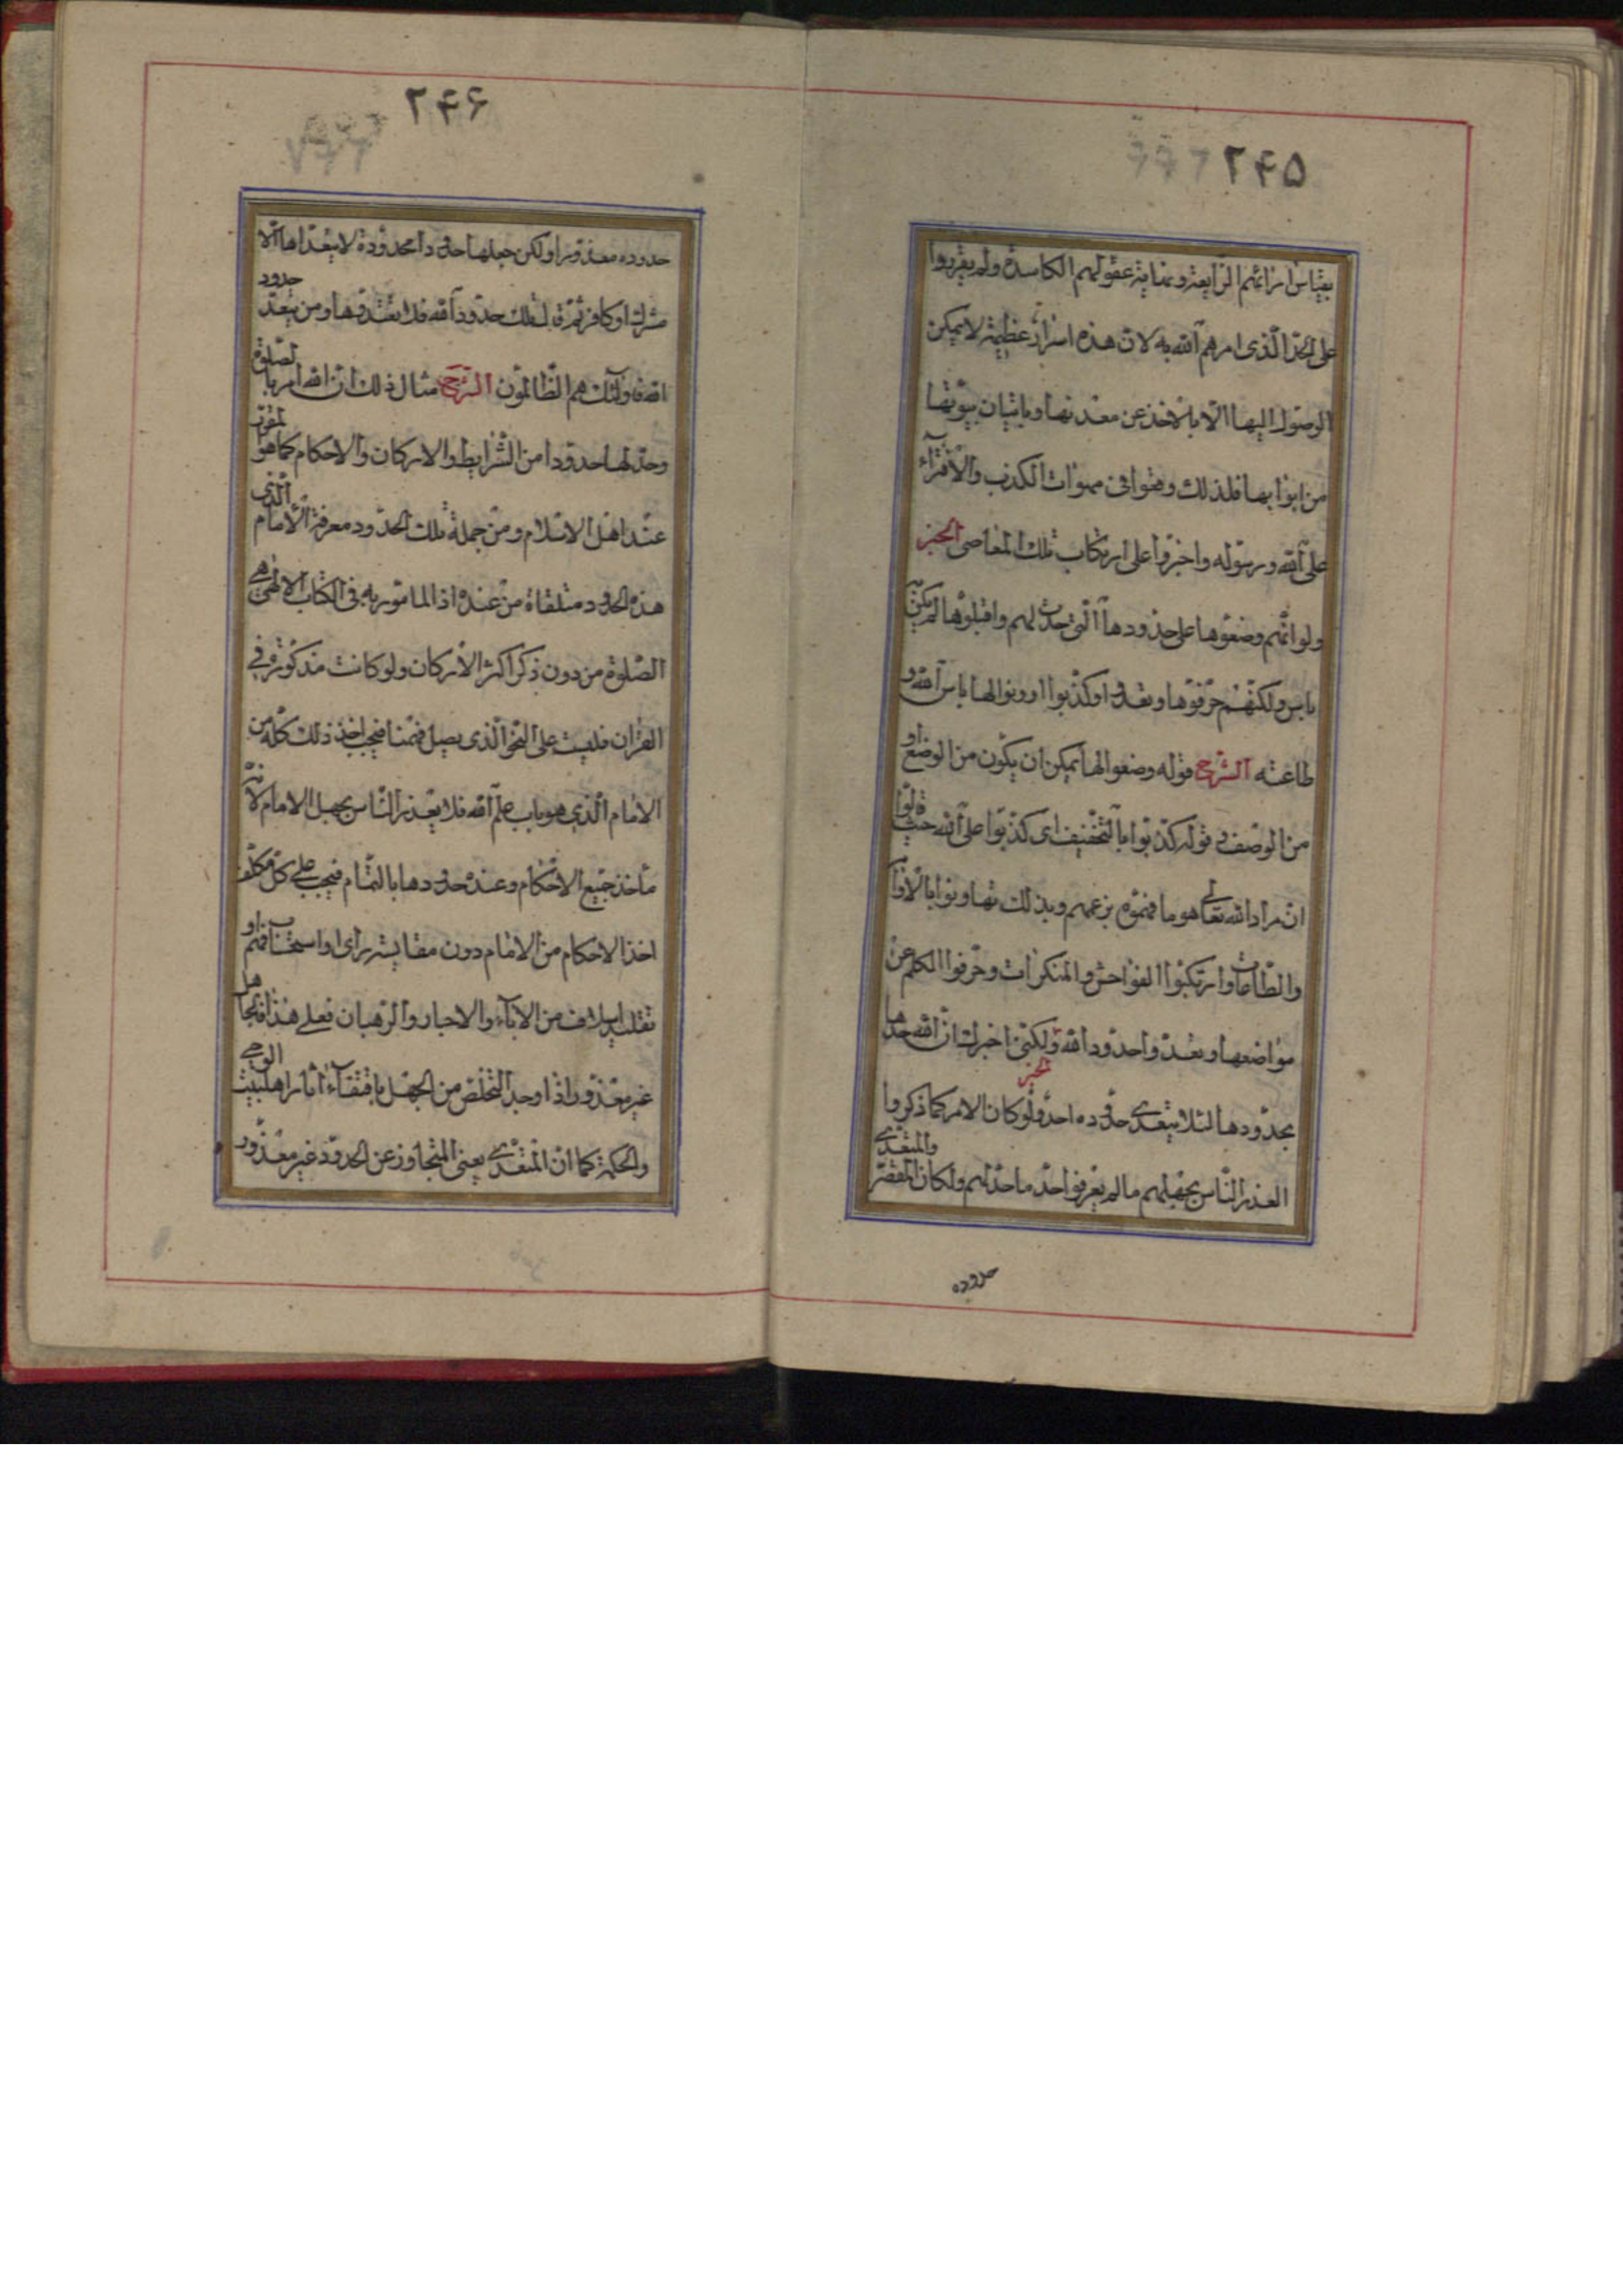 ۲۴۵
بقياس ارائهم الزايغة و عقولهم الكاسدة ولم يقربوا
على الحد الذى امرهم الله به لان هذه اسرار عظيمة لا يمكن
الوصول اليها الا بالاخذ عن معدنها وباتيان بيوتها
من ابوابها فلذلك وقعوا فى مهوات الكذب والافتراء
على الله ورسوله واجترؤا على ارتكاب تلك المعاصى الخبر
ولو انهم وضعوها على حدودها التى حدت لهم واقبلوها لم يكن به
باس ولكنهم حرفوها وتعدوا وكذبوا وتهاونوا بامر الله و
طاعته الشرح قوله وضعوها يمكن ان يكون من الوضع او
من الوصف و قوله كذبوا بالتخفيف اى كذبوا على الله حيث قالوا
ان مراد الله تعالى هو ما فهموه بزعمهم وبذلك تهاونوا
والطاعات وارتكبوا الفواحش والمنكرات وحرفوا الكلم عن
مواضعها وتعدوا حدود الله ولكنى اخبرك ان الله حدها
بحدودها لئلا يتعدى حدوده احد الخبر ولو كان الامر كما ذكروا
لعذر الناس بجهلهم ما لم يعرفوا حد ما حد لهم ولكان المقصر والمتعدى
حدوده
۲۴۶
حدوده معذورا ولكن جعلها حدودا محدودة لا يتعداها الا
مشرك او كافر ثم قال تلك حدود الله فلا تعتدوها ومن يتعد حدود
الله فاولئك هم الظالمون الشرح مثال ذلك ان الله امر بالصلوة
وحد لها حدودا من الشرايط والاركان والاحكام كما هو المقرر
عند اهل الاسلام ومن جملة تلك الحدود معرفة الامام الذى
هذه الحدود متلقاة من عنده اذ المامور به فى الكتاب الالهى هى
الصلوة من دون ذكر اكثر الاركان ولو كانت مذكورة فى
القران فليست على النحو الذى يصل فهمنا فيجب اخذ ذلك كله من
الامام الذى هو باب علم الله فلا يعذر الناس بجهل الامام لانه
ماخذ جميع الاحكام وعنده حدودها بالتمام فيجب على كل مكلف
اخذ الاحكام من الامام دون مقايسة براى او استحسان او
تقليد اسلاف من الاباء والاحبار والرهبان فعلى هذا فالجاهل
غير معذور اذا وجد التخلص من الجهل باقتفاء اثار اهل بيت الوحى
والحكمة كما ان المتعدى يعنى المتجاوز عن الحدود غير معذور